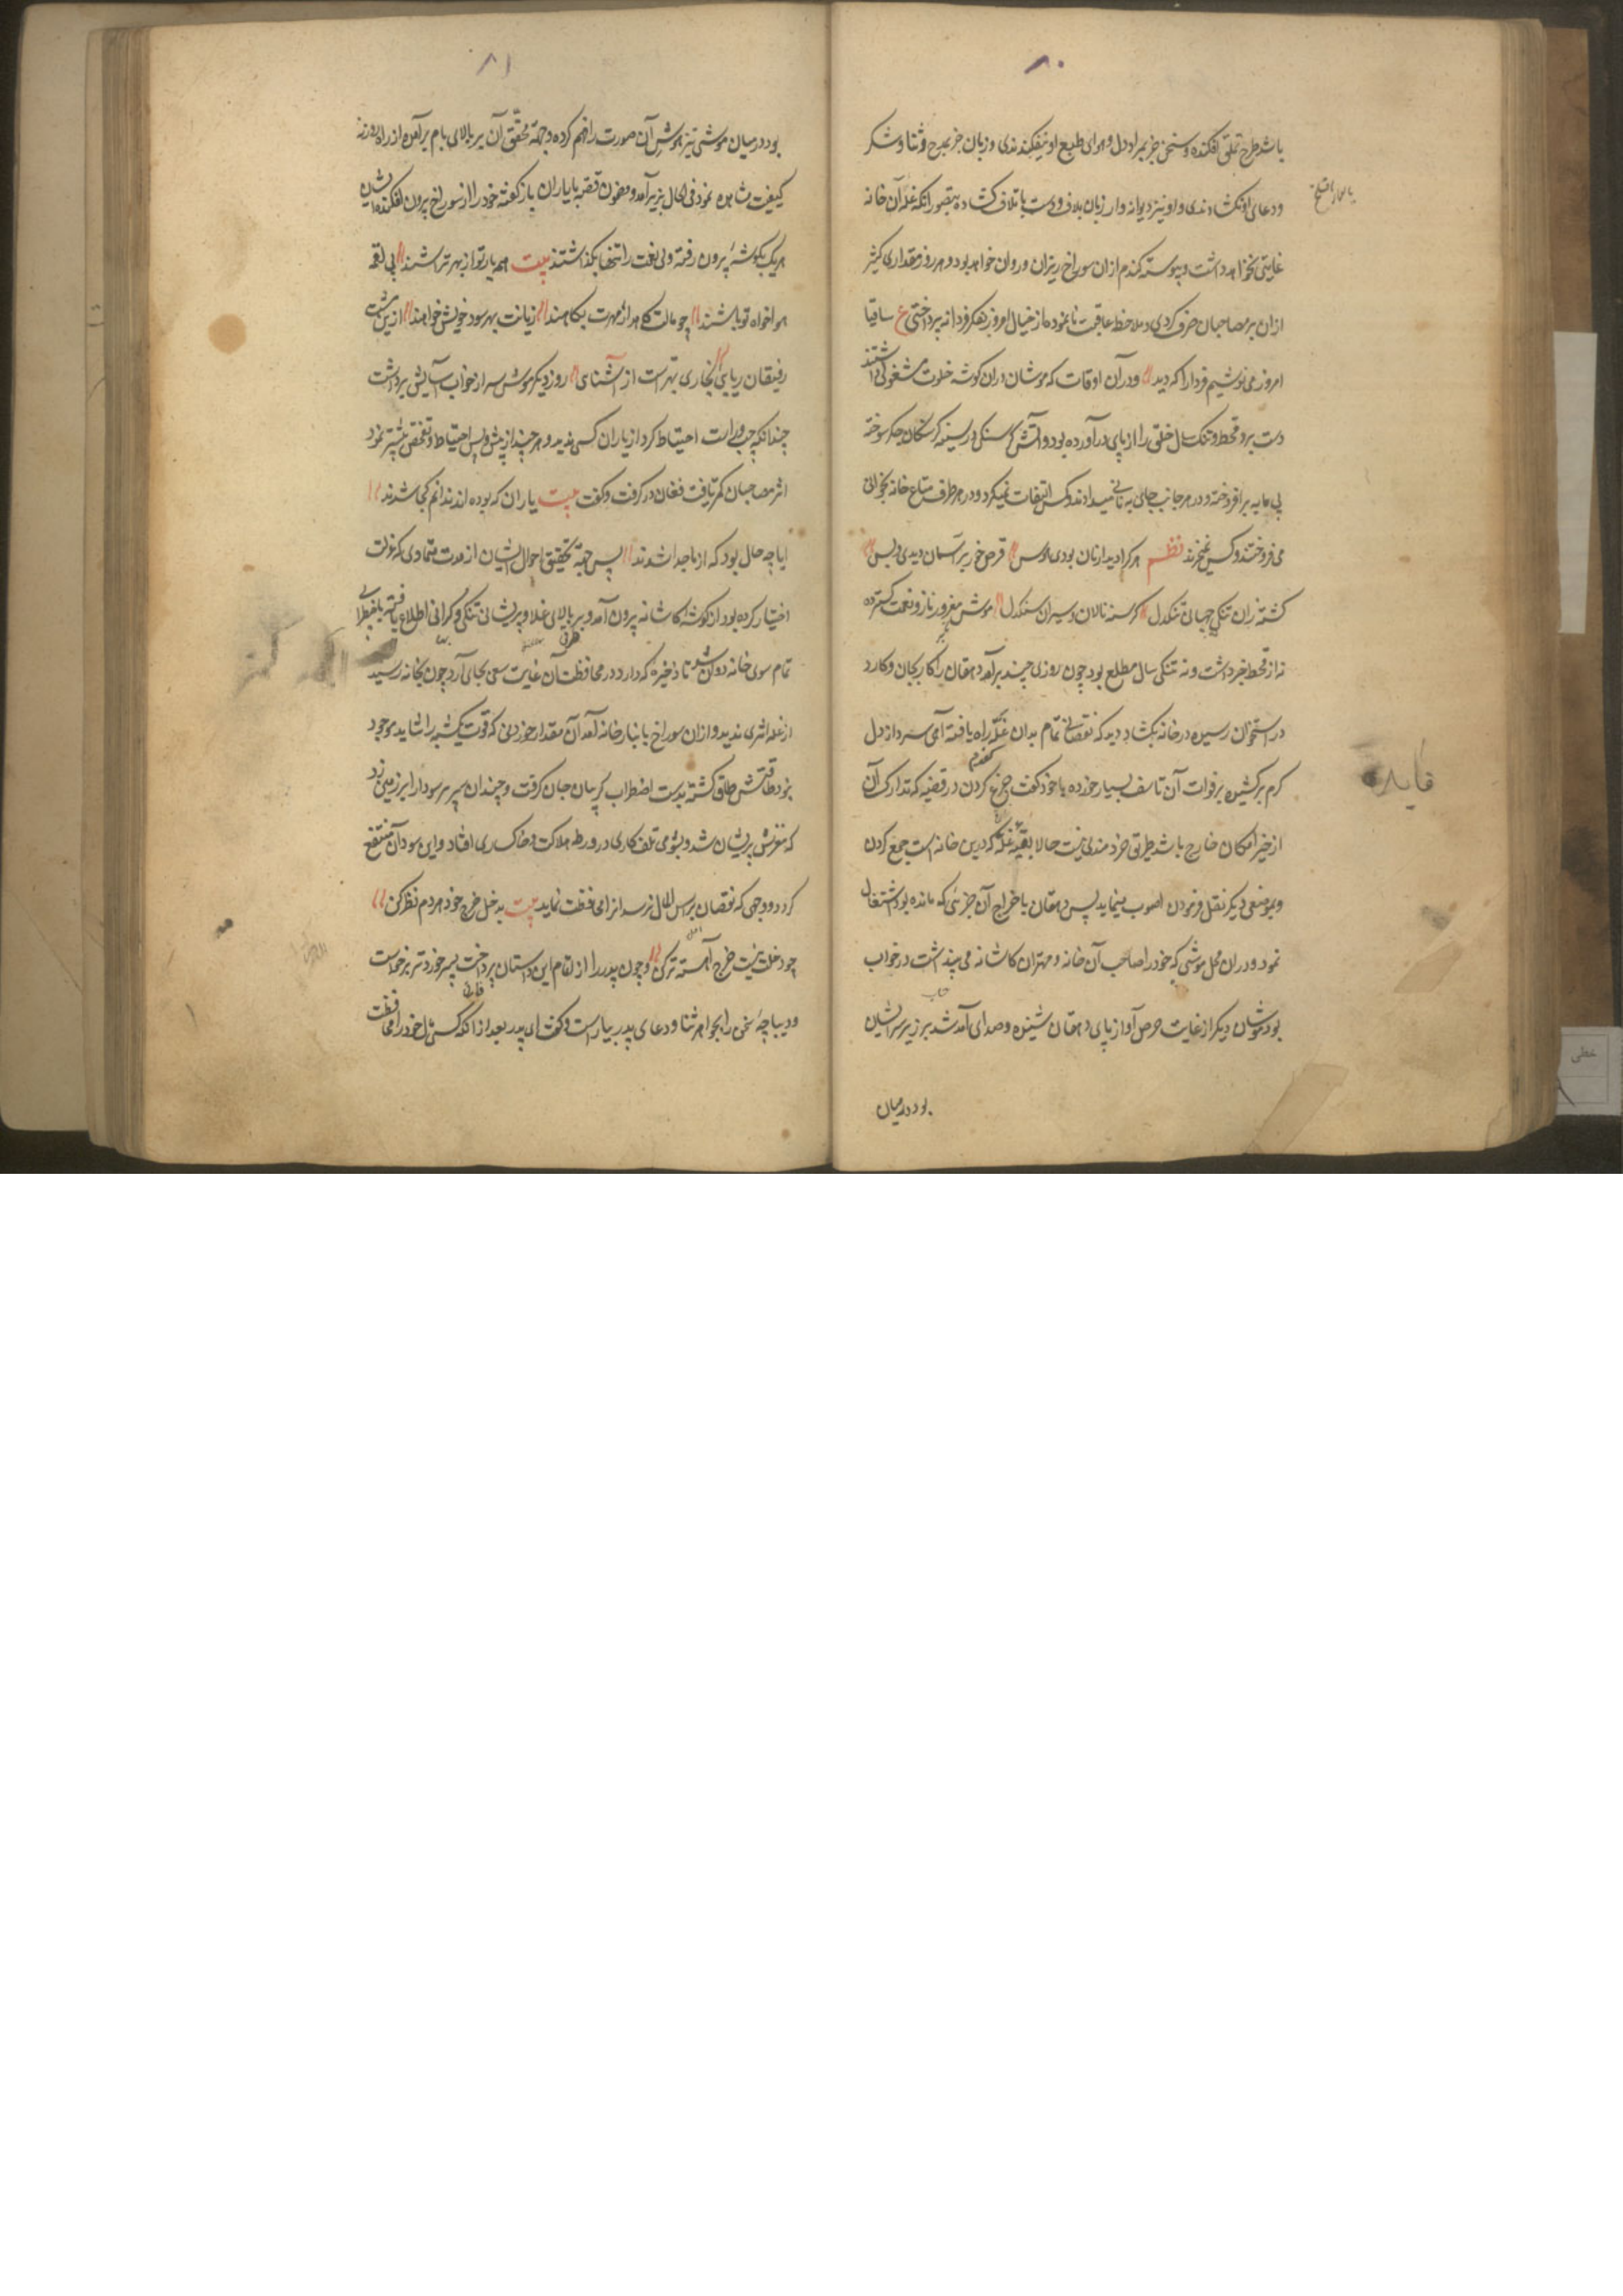 ۸۰
باشد طرح تملق افکنده و سخن جز بمراد دل و هوای طبع او نیفکندندی و زبان جز بمدح و ثنا و شکر
و دعای او نگشادندی و او نیز دیوانه وار زبان بلاف و دست باتلاف گشاده بتصور آنکه غله آن خانه
غایتی نخواهد داشت و پیوسته گندم ازان سوراخ ریزان و روان خواهد بود و هر روز مقداری کثیر
ازان بر مصاحبان صرف کردی و ملاحظه عاقبت نانموده از خیال امروز بفکر فردا نه پرداختی ع ساقیا
امروز می نوشیم فردا را که دید و در آن اوقات که موشان دران گوشه خلوت مشغولی داشتند
دست برد قحط و تنگ سال خلق را از پای درآورده بود و آتش گرسنگی در سینه گرسنگان جگر سوخته
بی مایه برافروخته و در هر جانب جانی به نانی میدادند و کس التفات نمیکرد و در هر طرف متاع خانه بخوانی
می فروختند و کس نمیخرید نظم هر کرا دیدار نان بودی هوس قرص خور بر آسمان دیدی و بس
گشته زان تنگی جهانی تنگدل گرسنه نالان و سیران سنگدل موش مغرور ناز و نعمت گسترده
نه از قحط خبر داشت و نه تنگی سال مطلع بود چون روزی چند برآمد دهقان را کار بجان و کارد
در استخوان رسیده در خانه بگشاد دید که نقصانی تمام بدان غله راه یافته آهی سرد از دل
گرم برکشیده بر فوات آن تاسف بسیار خورده با خود گفت جزع کردن در قضیه که تدارک آن
از حیز امکان خارج باشد طریق خردمندی نیست حالا بقیه غله که درین خانه است جمع کردن
و بموضعی دیگر نقل فرمودن اصوب مینماید پس دهقان باخراج آن جزئی که مانده بود اشتغال
نمود و دران محل موشی که خود را صاحب آن خانه و مهتران کاشانه می پنداشت در خواب
بود موشان دیگر از غایت حرص آواز پای دهقان شنیده و صدای آمد شد بر زبر سر ایشان
بود درمیان
فایده
۸۱
بود درمیان موشی تیز هوش آن صورت را فهم کرده و جهة تحقق آن بر بالای بام برآمده از راه روزنه
کیفیت مشاهده نمود فی الحال بزیر آمد و مضمون قصه با یاران باز گفته خود را از سوراخ بیرون افکند ایشان
هریک بگوشهٔ بیرون رفته ولی نعمت را تنها بگذاشتند بیت همه یار تو از بهر تراشند پی لقمه
هواخواه تو باشند چو مالت کاهد از مهرت بکاهند زیانت بهر سود خویش خواهند ازین مشتی
رفیقان ریایی بریدن بهتر است از آشنایی روز دیگر موش سر از خواب آسایش برداشت
چندانکه چپ و راست احتیاط کرد از یاران کسی ندید و هر چند از پیش و پس احتیاط و تفحص بیشتر نمود
اثر مصاحبان کمتر یافت فغان درگرفت و گفت بیت یاران که بوده اند ندانم کجا شدند
ایا چه حال بود که از ما جدا شدند پس جهة تحقیق احوال ایشان از مدت متمادی که عزلت
اختیار کرده بود از گوشه کاشانه بیرون آمد و بر بالای غلا و پریشانی تنگی و گرانی اطلاع یافته باضطراب
تمام سوی خانه دوان شد تا ذخیرهٔ که دارد در محافظت آن غایت سعی بجای آرد چون بخانه رسید
از غله اثری ندید و ازان سوراخ بانبار خانه آمد آن مقدار خوردنی که قوت یکشبه را شاید موجود
نبود طاقتش طاق گشته بدست اضطراب گریبان جان گرفت و چندان سر پر سودا را بر زمین زد
که مغزش پریشان شد و بشومی تلف کاری در ورطه هلاکت و خاکساری افتاد و این سود آن منتفع
گردد و وجهی که نقصان براس المال نرسد انرا محافظت نماید بیت به دخل خرج خود هر دم نظر کن
چو دخلت نیست خرج آهسته تر کن و چون پدر را از اتمام این داستان پرداخت پسر خوردتر برخاست
و دیباچهٔ سخن را بجواهر ثنا و دعای پدر بیاراست و گفت ای پدر بعد از آنکه کسی مال خود را محافظت
خطی